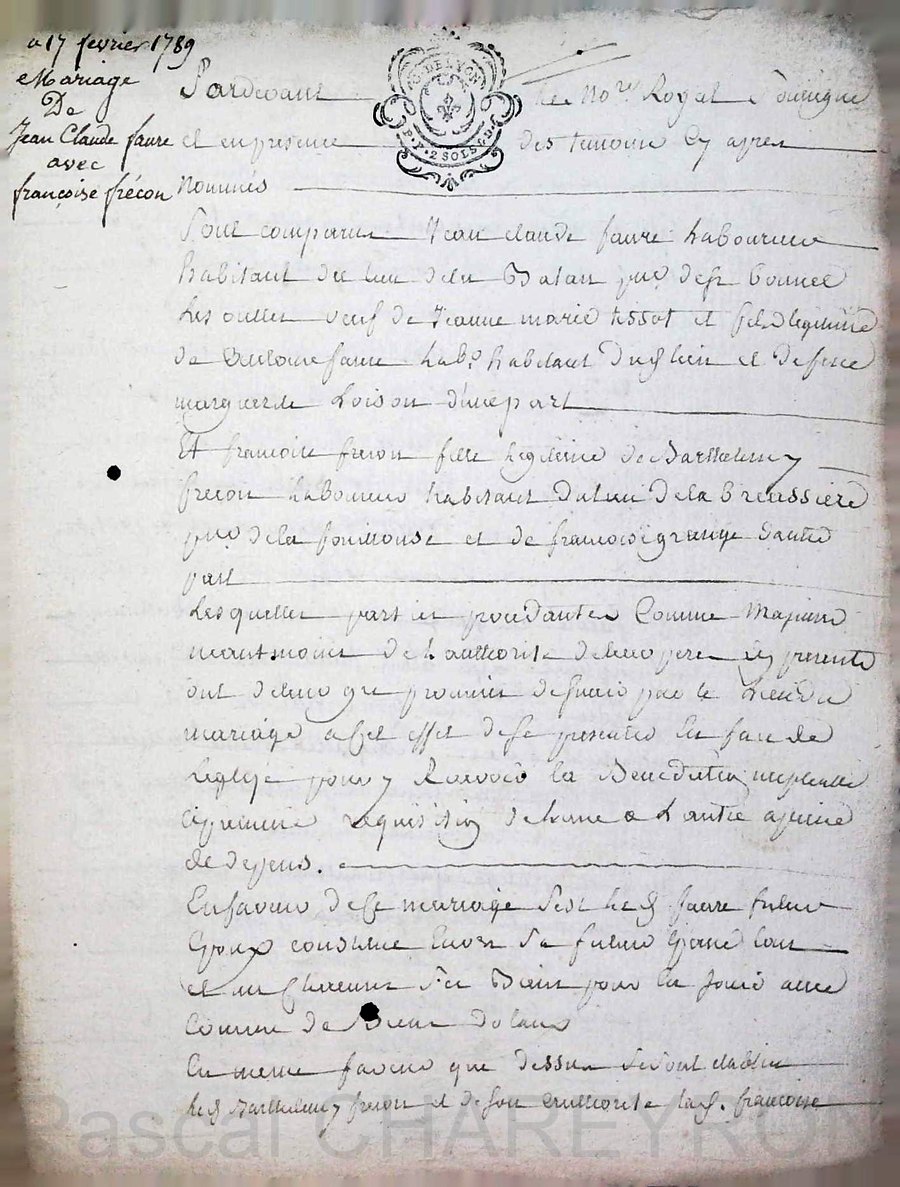 a 17 fevrier 1789
Mariage
De
Jean Claude faure
avec
françoise frécon
G. DE LYON
P.P. 2 SOLS 4 D.
Pardevant Le No.re Royal Soussigné
et en presence des temoins Cy apres
Nommés
Sont comparus Jean claude faure Laboureur
habitant du lieu dela Balan psse de St bonnet
Les oulles veuf de Jeanne marie tissot et fils legitime
de antoine faure Lab.r habitant dud lieu et defunte
marguerite Loison d'une part
Et francoise frecon fille Legitime de Barthelemy
frecon Laboureur habitant du lieu de la breussiere
psse de la fouillouse et de francoise grange dautre
part
Lesquelles parties procedantes Comme Majeure
neantmoins de Lauthorité de leurs peres icy presents
ont de leur gré promis de sunir par le Lien du
mariage a cet effet de se presenter En face de
Leglise pour y Recevoir la Benediction nuptiale
a premiere requisition de Lune a Lautre a peine
de depens.
En faveur de ce mariage sest led faure futur
Epoux constitué Envers sa future Epouse tous
et un Chacuns ses Biens pour En jouir avec
Comme de Biens dotaux
En meme faveur que dessus se sont etablis
led Barthelemy frecon et de son authorite lad. francoise
Pascal CHAREYRON